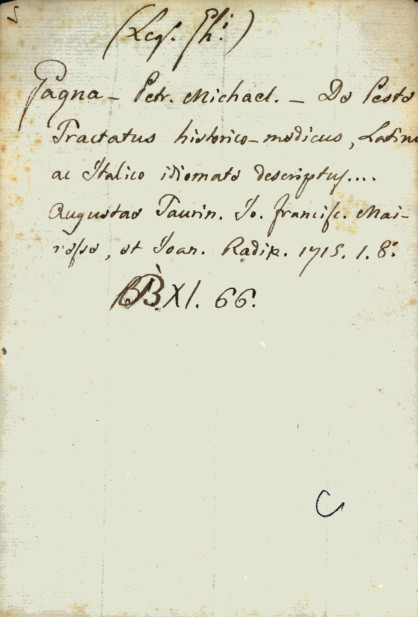 (Leg. Gh.)
Gagna - Petr. Michael. - De Peste
Tractatus historico-medicus, Latino
ac Italico idiomate descriptus....
Augustae Taurin. Jo. Francisc. Mai-
resse, et Joan. Radix. 1715. 1. 8.
BB XI. 66.
C